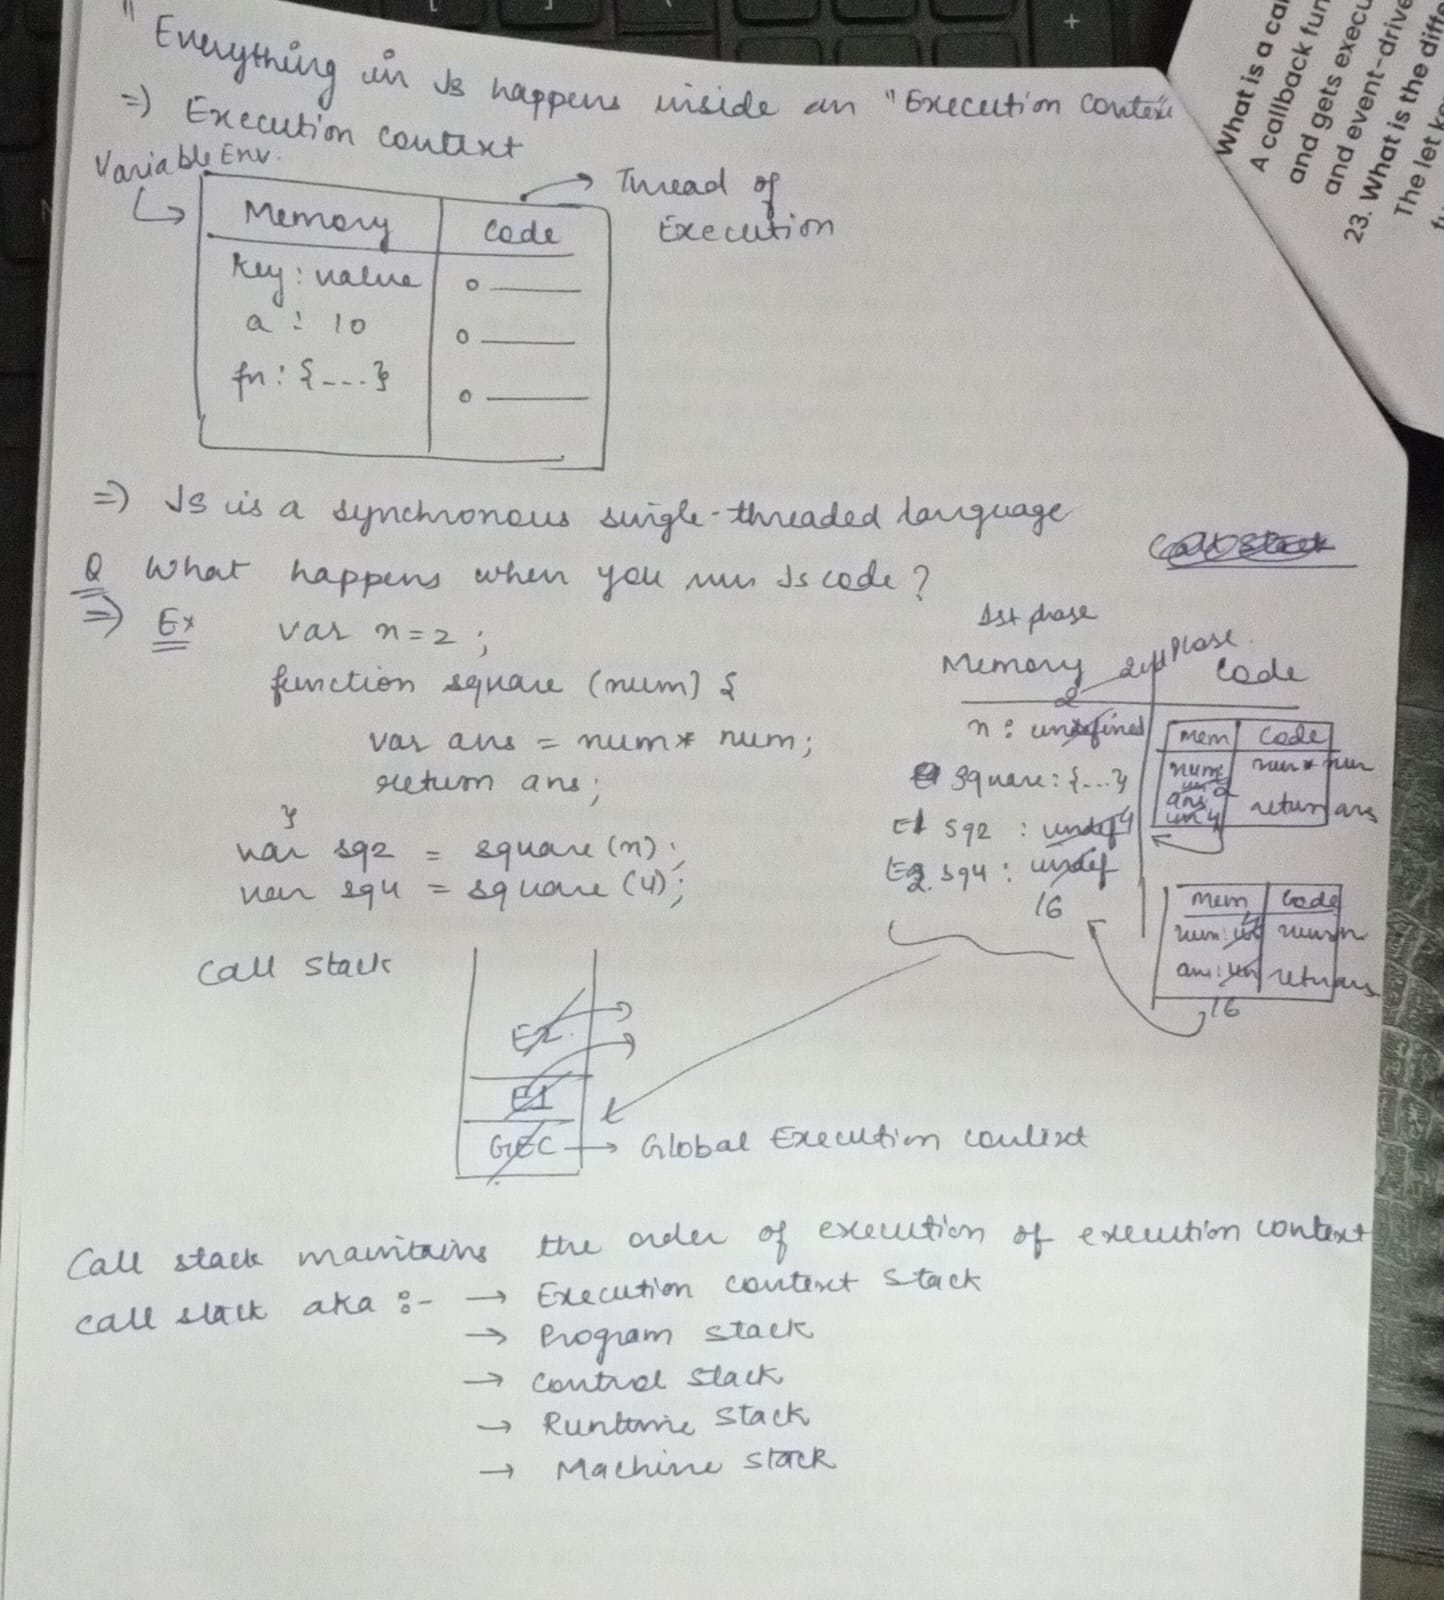 "Everything in Js happens inside an "Execution context
=) Execution context
Variable Env.
Thread of
Execution
Memory Code
Key : value
a : 10
fn : {---}
=) Js is a synchronous single-threaded language
Q What happens when you run Js code?
=) Ex var n=2 ;
function square (num) {
var ans = num* num;
return ans;
}
var sq2 = square (n);
var sq4 = square (4);
1st phase
2nd Phase.
Memory Code
2
n : undefined
square : {...}
E1 sq2 : undef 4
E2. sq4 : undef
16
mem Code
num num * num
2
ans return ans
un 4
mem Code
num: 4
ans: un return ans
16
Call stack
E2.
E1
GEC → Global Execution context
Call stack maintains the order of execution of execution context
call stack aka :- → Execution context stack
→ Program stack
→ Control stack
→ Runtime stack
→ Machine stack
What is a ca
A callback fun
and gets execu
and event-drive
23. What is the diffe
The let ke